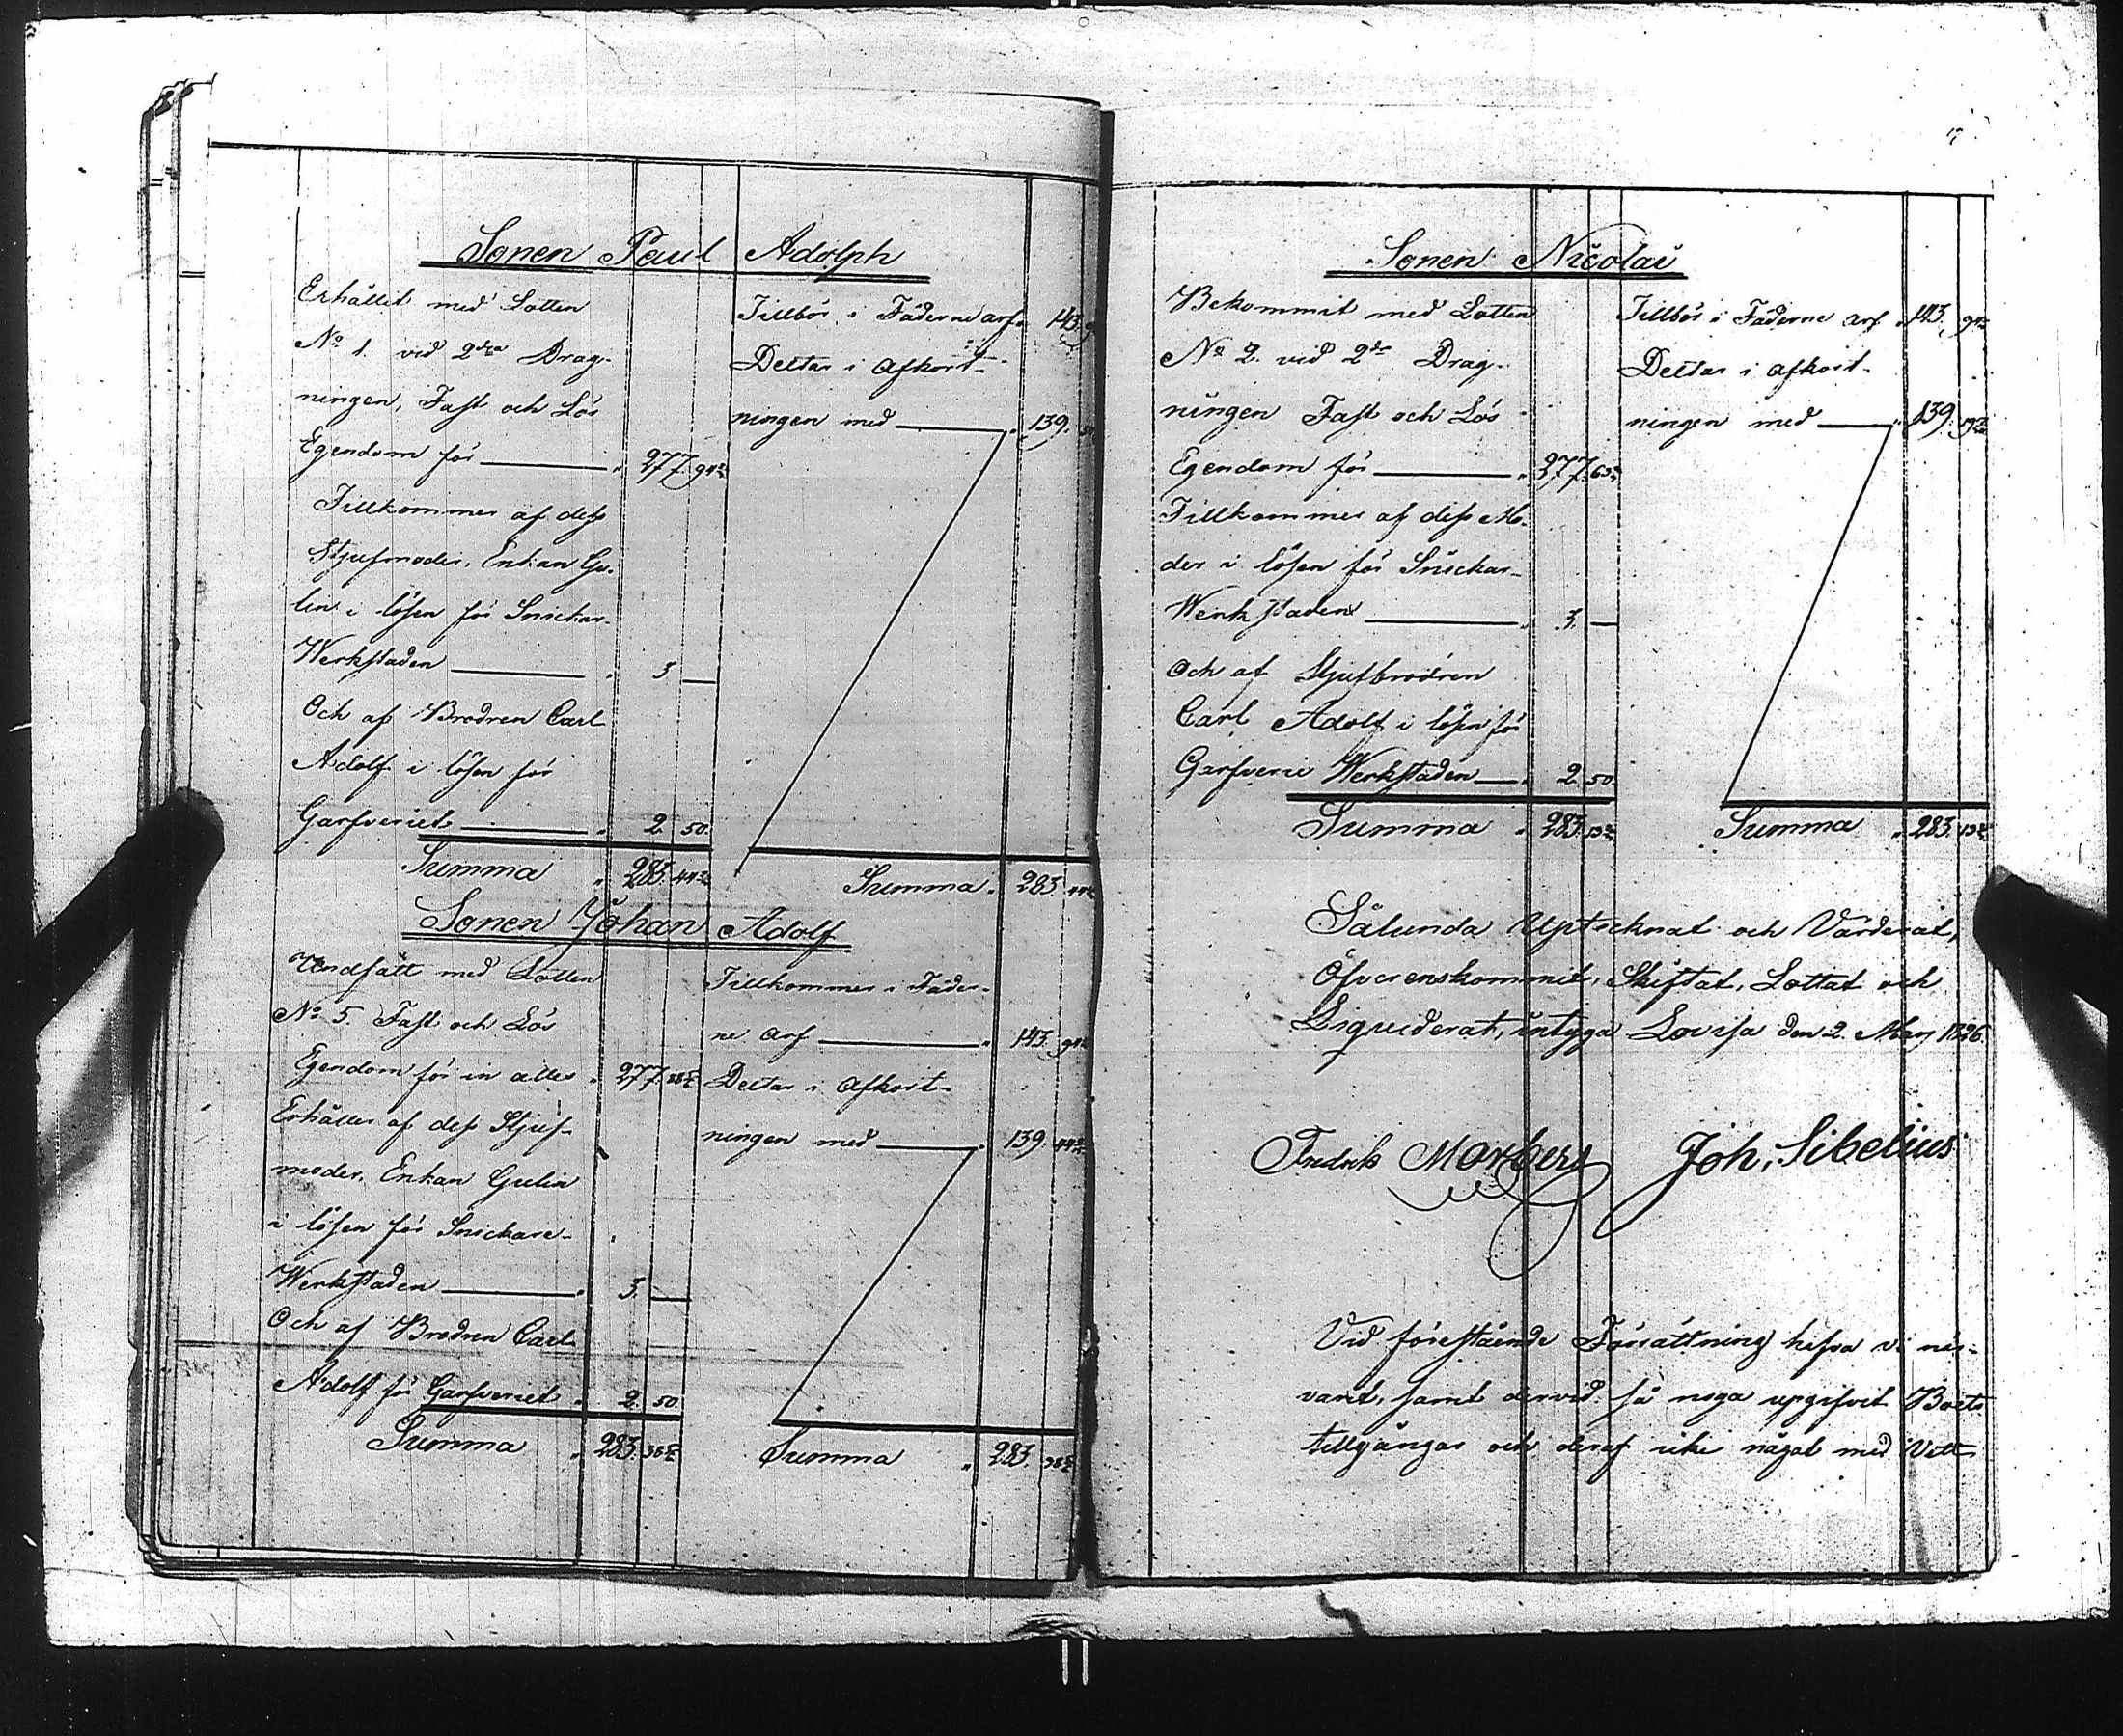 Sonen Paul Adolph
Erhållit med Lotten
No 1. vid 2dra Drag-
ningen, Fast och Lös
Egendom för " 277.
Tillkommer af dess
Stjufmoder, Enkan Gu-
lin i lösen för Snickar-
Werkstaden " 3 —
Och af Brodren Carl
Adolf i lösen för
Garfveriet " 2. 50.
Summa " 283.
Tillbör i Fäderne arf " 143.
Deltar i afkort-
ningen med " 139.
Summa " 283.
Sonen Johan Adolf
Undfått med Lotten
No 5. Fast och Lös
Egendom för in alles " 277.
Erhåller af dess Stjuf-
moder, Enkan Gulin
i lösen för Snickare-
Werkstaden " 3. —
Och af Brodren Carl
Adolf för Garfveriet " 2. 50.
Summa " 283.
Tillkommer i Fäder-
ne arf " 143.
Deltar i afkort-
ningen med " 139.
Summa " 283.
Sonen Nicolai
Bekommit med Lotten
No 2. vid 2dra Drag-
ningen Fast och Lös
Egendom för " 277.
Tillkommer af dess Mo-
der i lösen för Snickar-
Werkstaden " 3. —
Och af Stjufbrodren
Carl Adolf i lösen för
Garfveri Werkstaden " 2. 50.
Summa " 283.
Tillbör i Fäderne arf " 143.
Deltar i afkort-
ningen med " 139.
Summa " 283.
Sålunda Uptecknat och Värderat,
Öfverenskommit, Skiftat, Lottat och
Liquiderat, intyga Lovisa den 2. May 1826.
Fredrik Joh. Sibelius
Vid förestående Förrättning hafva vi när-
varit, samt dervid så noga upgifvit Boets
tillgångar och deraf icke något med Vett